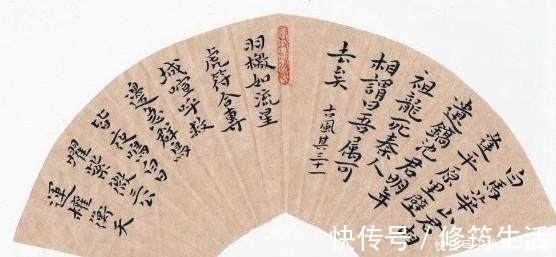 白馬華山君相
逢平原里璧
遺鎬池君明年
祖龍死秦人
相謂曰吾属可
去矣
古風其三十一
羽檄如流星
虎符合專
城喧呼救
邊急群鳥
皆夜鳴白日
曜紫微三公
運權衡天
快传号／修筠生活